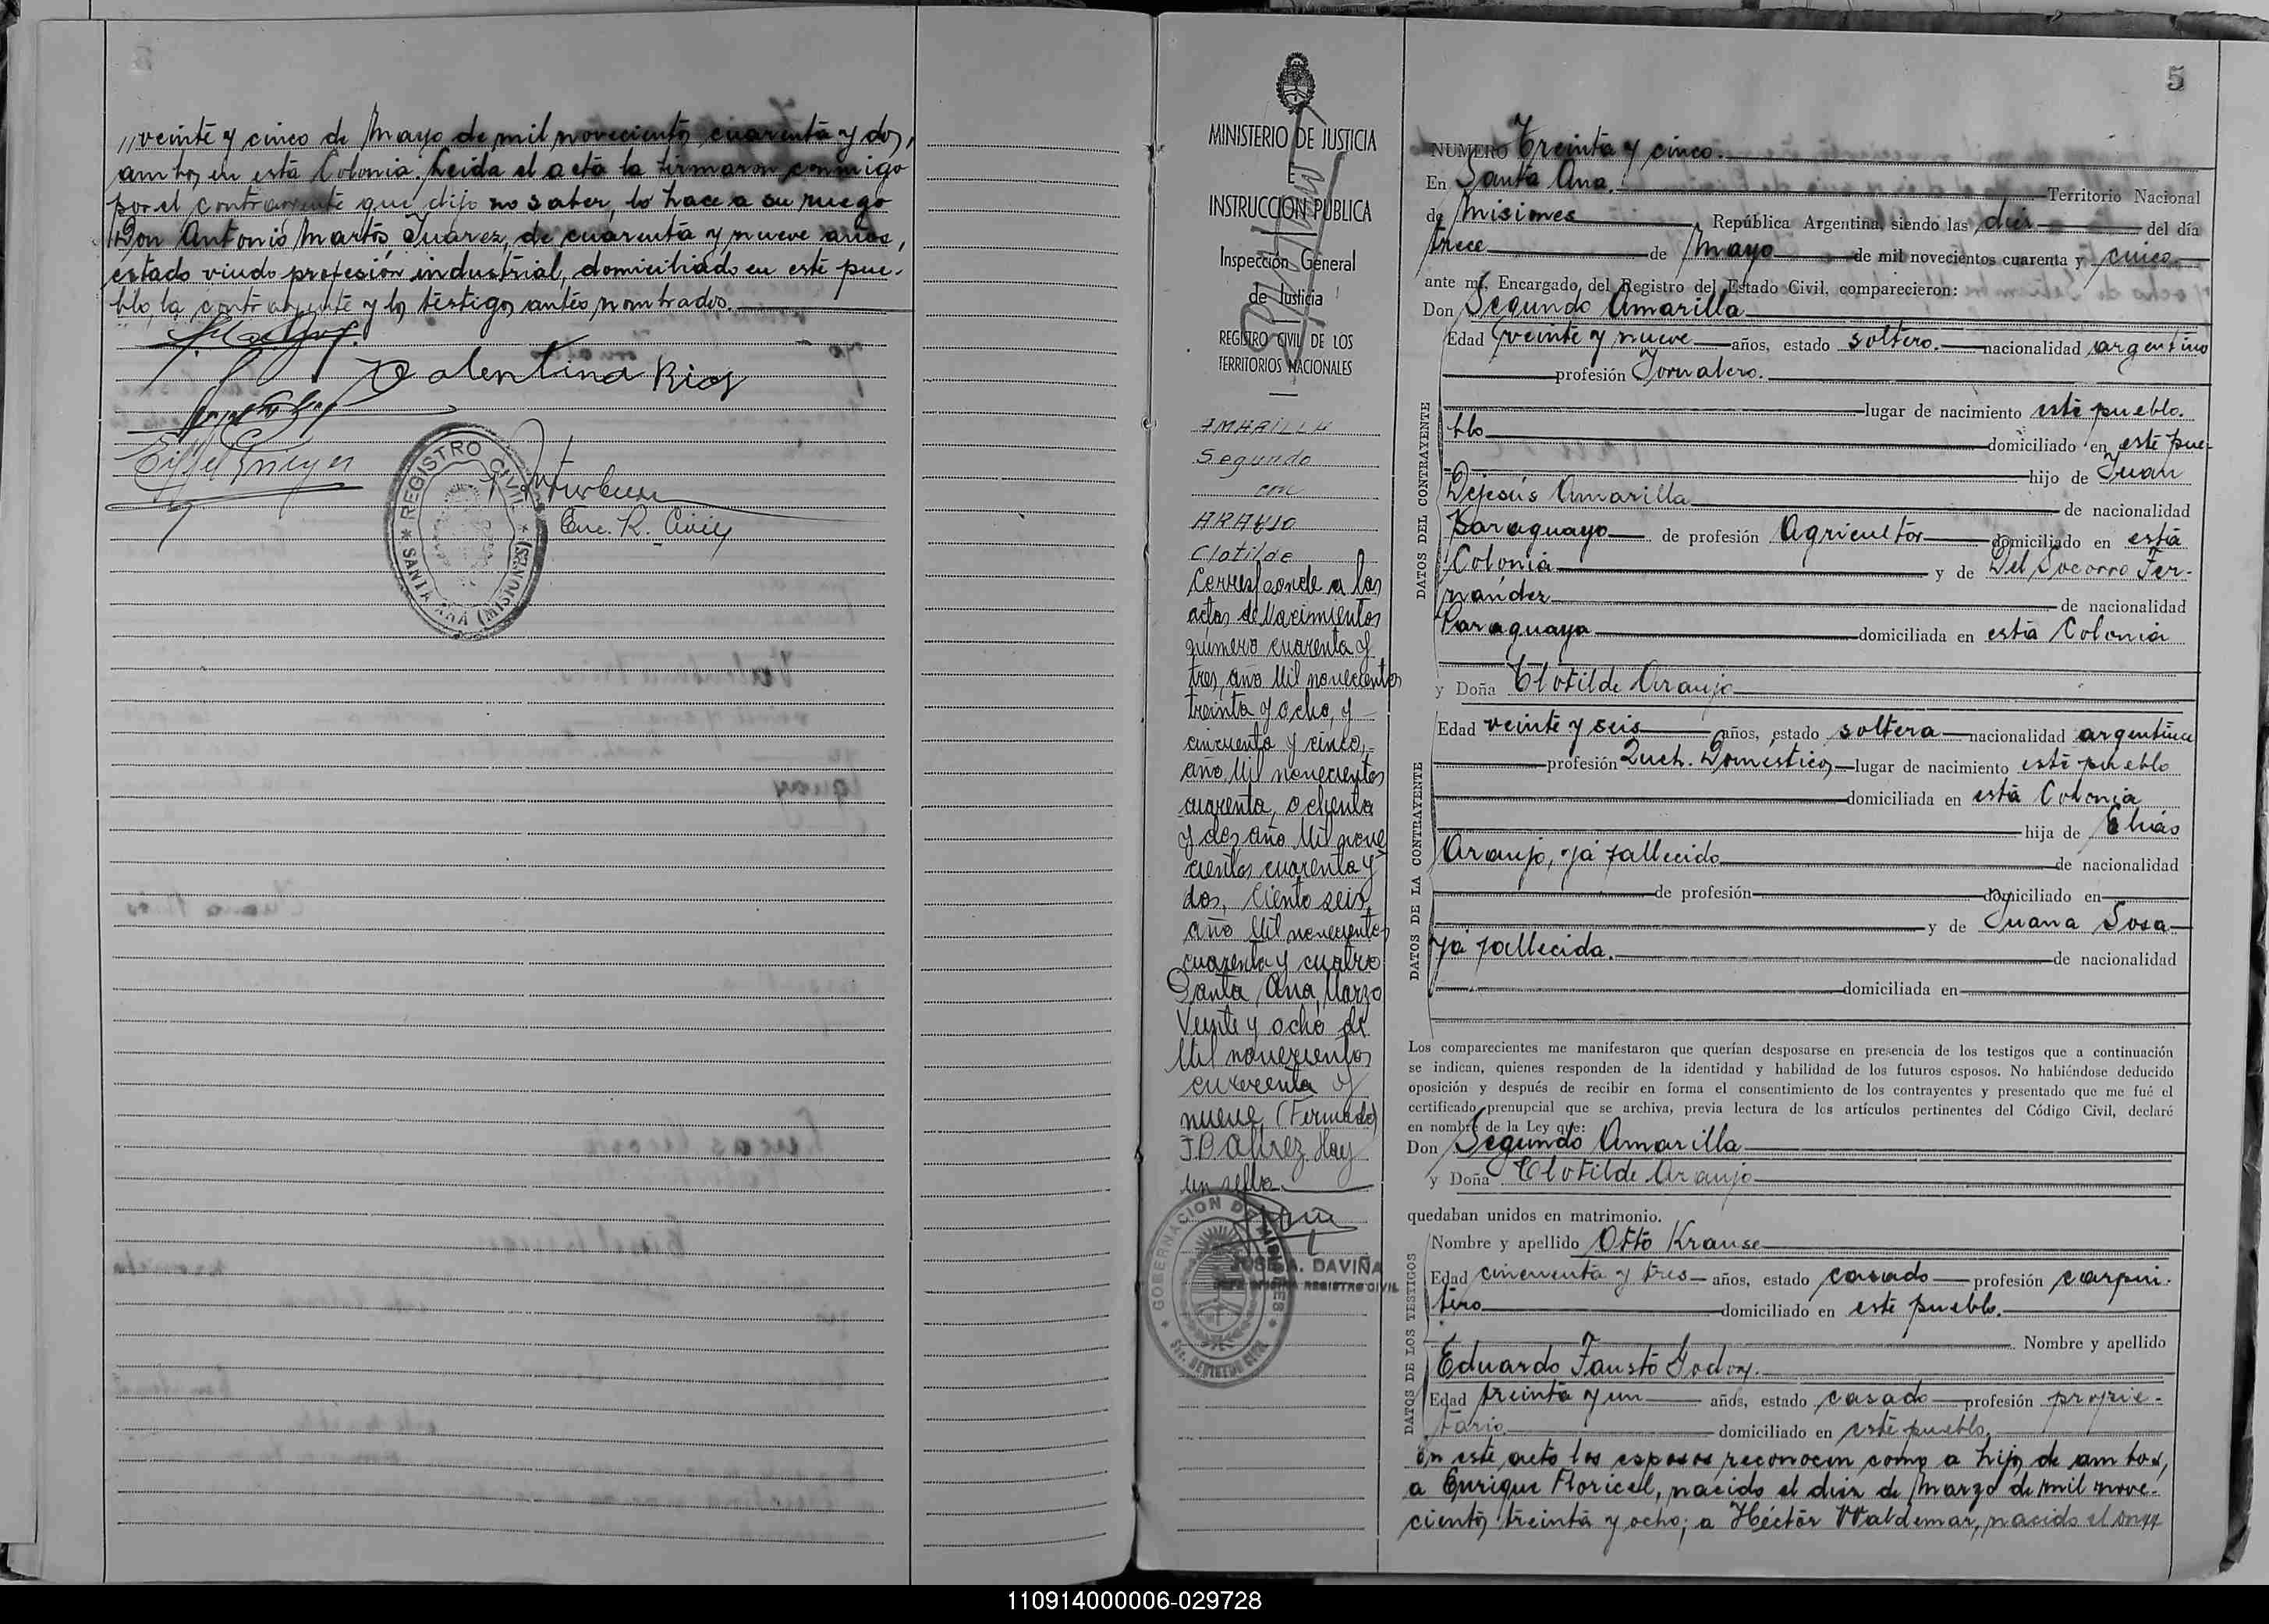 " veinte y cinco de Mayo de mil novecientos cuarenta y dos,
ambos en esta Colonia. Leida el acta la firmaron conmigo
por el contrayente que dijo no saber, lo hace a su ruego
Don Antonio Martos Juárez, de cuarenta y nueve años,
estado viudo profesión industrial, domiciliado en este pue-
blo, la contrayente y los testigos antes nombrados.
Valentina Rios
Enc. R. Civil
* REGISTRO CIVIL * SANTA ANA (MISIONES)
MINISTERIO DE JUSTICIA
E
INSTRUCCION PUBLICA
Inspección General
de Justicia
REGISTRO CIVIL DE LOS
TERRITORIOS NACIONALES
AMARILLA
Segundo
con
ARAUJO
Clotilde
Corresponde a las
actas de Nacimientos
número cuarenta y
tres, año Mil novecientos
treinta y ocho, y
cincuenta y cinco,
año Mil novecientos
cuarenta, ochenta
y dos año Mil nove
cientos cuarenta y
dos, Ciento seis,
año Mil novecientos
cuarenta y cuatro
Santa Ana, Marzo
Veinte y ocho de
Mil novecientos
cuarenta y
nueve (Firmado)
J.B Alvrez Hay
un sello.
GOBERNACION DE MISIONES
JOSE A. DAVIÑA
JEFE OFICINA REGISTRO CIVIL
5
NUMERO Treinta y cinco.
En Santa Ana. Territorio Nacional
de Misiones, República Argentina, siendo las diez del día
trece de Mayo de mil novecientos cuarenta y cinco
ante mí, Encargado del Registro del Estado Civil, comparecieron:
Don Segundo Amarilla
DATOS DEL CONTRAYENTE
Edad veinte y nueve años, estado soltero. nacionalidad argentino
profesión Jornalero.
lugar de nacimiento este pueblo.
blo domiciliado en este pue-
hijo de Juan
Dejesús Amarilla de nacionalidad
Paraguayo de profesión Agricultor domiciliado en esta
Colonia y de Del Socorro Fer-
nández de nacionalidad
Paraguaya domiciliada en esta Colonia
y Doña Clotilde Araujo
DATOS DE LA CONTRAYENTE
Edad veinte y seis años, estado soltera nacionalidad argentina
profesión Queh. Domésticos lugar de nacimiento este pueblo
domiciliada en esta Colonia
hija de Elias
Araujo, ya fallecido de nacionalidad
de profesión domiciliado en
y de Juana Sosa
ya fallecida. de nacionalidad
domiciliada en
Los comparecientes me manifestaron que querían desposarse en presencia de los testigos que a continuación
se indican, quienes responden de la identidad y habilidad de los futuros esposos. No habiéndose deducido
oposición y después de recibir en forma el consentimiento de los contrayentes y presentado que me fué el
certificado prenupcial que se archiva, previa lectura de los artículos pertinentes del Código Civil, declaré
en nombre de la Ley que:
Don Segundo Amarilla
y Doña Clotilde Araujo
quedaban unidos en matrimonio.
DATOS DE LOS TESTIGOS
Nombre y apellido Otto Krause
Edad cincuenta y tres años, estado casado profesión carpin-
tero domiciliado en este pueblo.
Nombre y apellido
Eduardo Fausto Godoy.
Edad treinta y un años, estado casado profesión propie-
tario. domiciliado en este pueblo.
En este acto los esposos reconocen como a hijos de ambos,
a Enrique Floricel, nacido el diez de Marzo de mil nove-
cientos treinta y ocho; a Héctor Waldemar, nacido el once
110914000006-029728